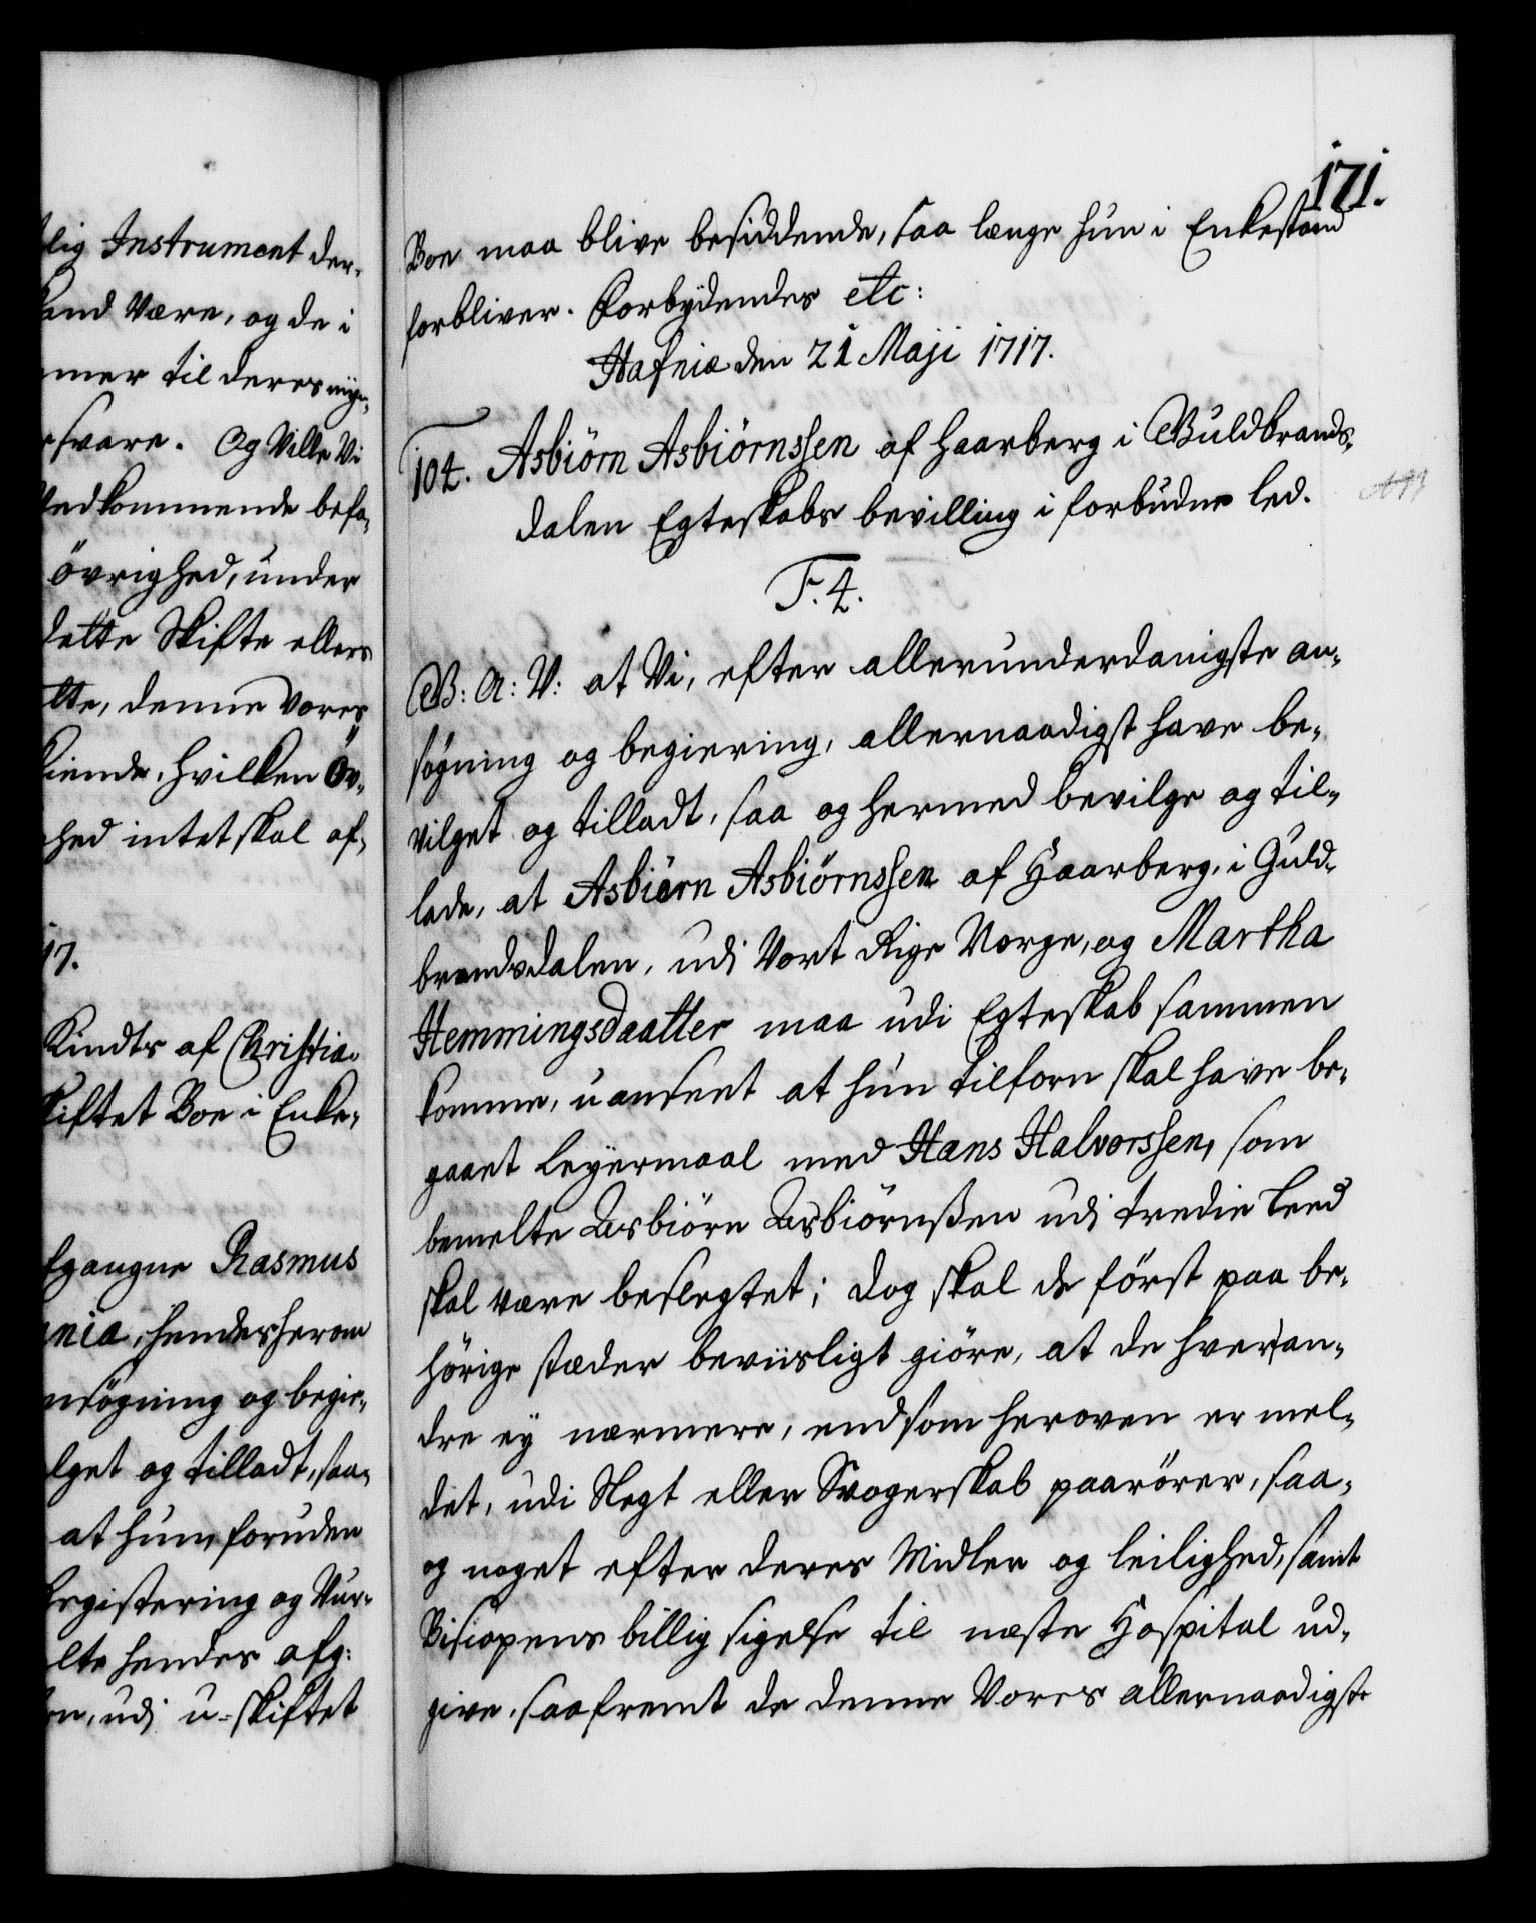 lig Instrument der-
kand være, og de i
mer til deres myn-
svare. Og Ville Vi
Vedkommende befa-
övrighed, under
dette Skifte ellers
tte, denne vores
kiende, hvilken öv-
hed intet skal af-
17.
Kindts af Christia-
kiftet Boe i Enke-
fgangne Rasmus
nia, hendes herom
nsøgning og begie-
lget og tilladt, saa-
at hun, foruden
Registering og Vur-
lte hendes afg:
n, udj u-skiftet
171.
Boe maa blive besiddende, saa længe hun i Enkestand
forbliver. Forbydendes etc:
Hafniæ den 21 Maji 1717.
104. Asbiörn Asbiörnssen af Haarberg i Guldbrands-
dalen Egteskabs bevilling i forbudne led.
F. 4.
G: A: V: at Vi, efter allerunderdanigste an-
søgning og begiering, allernaadigst have be-
vilget og tilladt, saa og hermed bevilge og til-
lade, at Asbiörn Asbiörnssen af Haarberg, i Guld-
brandsdalen, udj Vort Rige Norge, og Martha
Hemmingsdaatter maa udi Egteskab sammen
komme, uanseet at hun tilforn skal have be-
gaaet leyermaal med Hans Halvorssen, som
bemelte Asbiörn Asbiörnssen udj tredie Leed
skal være beslegtet; dog skal de först paa be-
hörige stæder beviisligt giöre, at de hveran-
dre ey nærmere, end som heroven er mel-
det, udi Slegt eller Svogerskab paarörer, saa-
og noget efter deres Midler og leilighed, samt
Bisiopens billig sigelse til næste Hospital ud-
give, saafremt de denne Vores allernaadigste